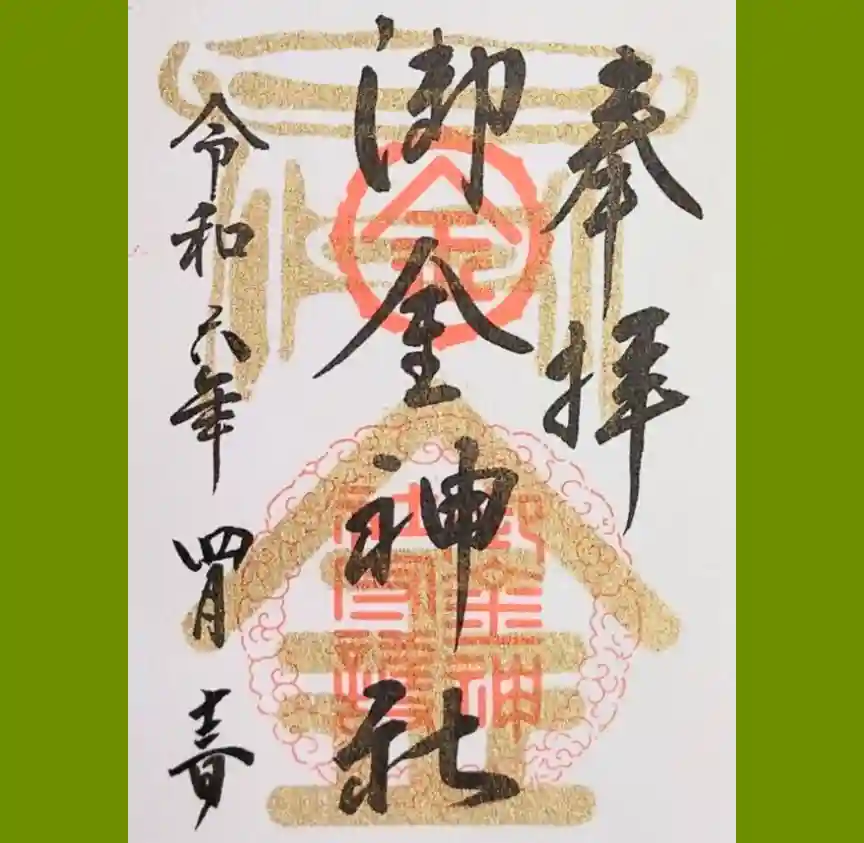 奉拝
御金神社
令和六年四月十三日
金
金
御金神
社